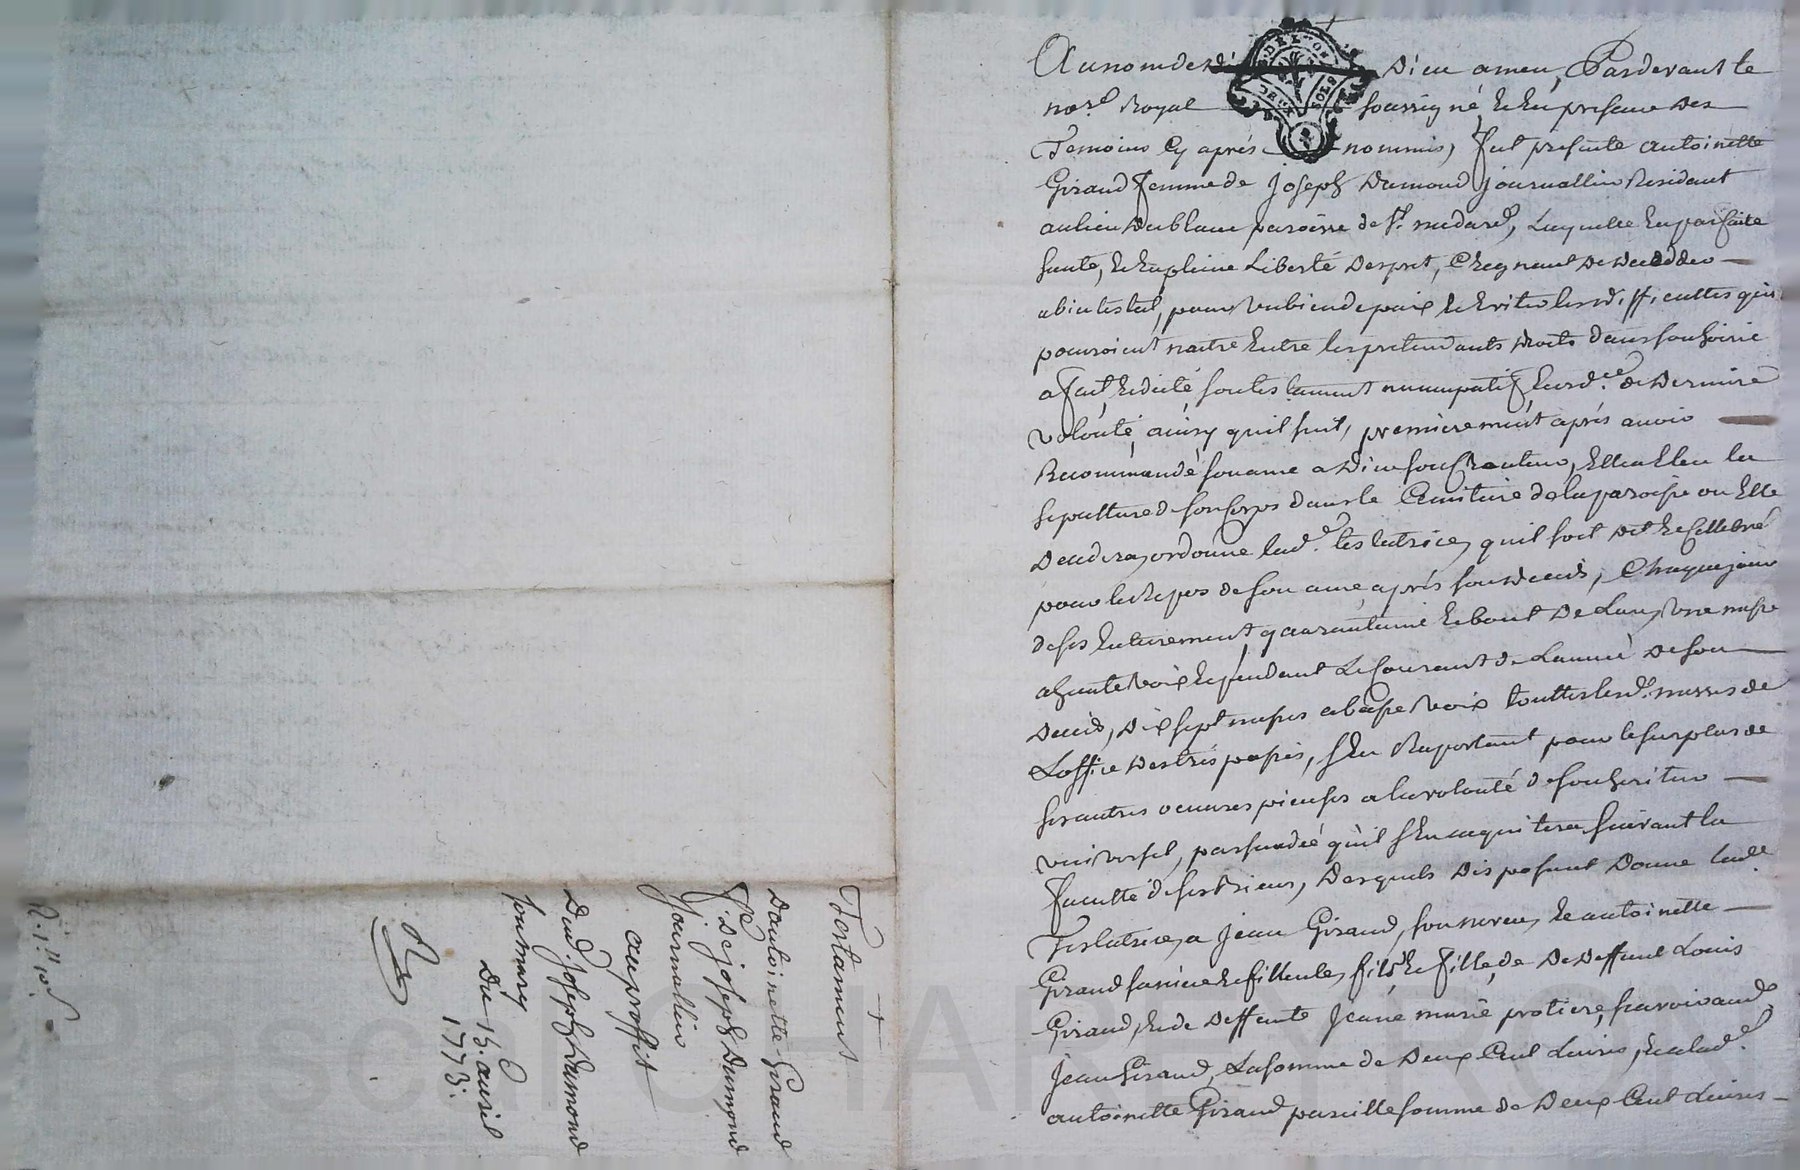 Au nom de d Dieu amen, Pardevant le
nore. Royal soussigné, & En presence des
Temoins Cy aprés nommés, fut presente antoinette
Giraud femme de Joseph Dumond journallier Residant
au lieu du blanc paroisse de St. medard, Laquelle En parfaite
santé, & En pleine Liberté d'esprit, Craignant de deceddeo
abintestat, pour un bien de paix & Eviter les difficultes qui
pouroient naitre Entre les pretendants droits dans son hoirie
a fait, & dicté son testament nuncupatif, & ordce. de derniere
volonté, ainsy qu'il suit, premierement aprés avoir
Recommandé son ame a Dieu son Createur, Elle a Eleu la
sepulture de son Corps dans le Cemitiere de la paroisse ou Elle
decedera, ordonne lade. testatrice, qu'il soit dit & Cellebré
pour le Repos de son ame, aprés son decés, Chaque jour
de ses Enterrement, quarantaine & bout de L'an, une messe
a haute voix & pendant Le Courant de L'année de son
decés, dix sept messes a basse voix touttes lesd. messes de
L'office des trépassés, s'En Raportant pour le surplus de
ses autres oeuvres pieuses a la volonté de son heritier
universel, persuadée qu'il s'En acquitera suivant la
faculté de ses biens, desquels disposant donne lade.
Testatrice, a Jean Giraud, son neveu, & antoinette
Giraud sa niece & filleule, fils & fille, de deffunt Louis
Giraud, & de deffunte Jeane marie protiere, savoir aud.
Jean Giraud, La somme de deux Cent Livres, & a lade.
antoinette Giraud pareille somme de deux Cent Livres
Testament
d'antoinette Giraud
fe. de joseph Dumond
Journallier
au proffit
Dud. joseph Dumond
son mary
Du 15. avril
1773.